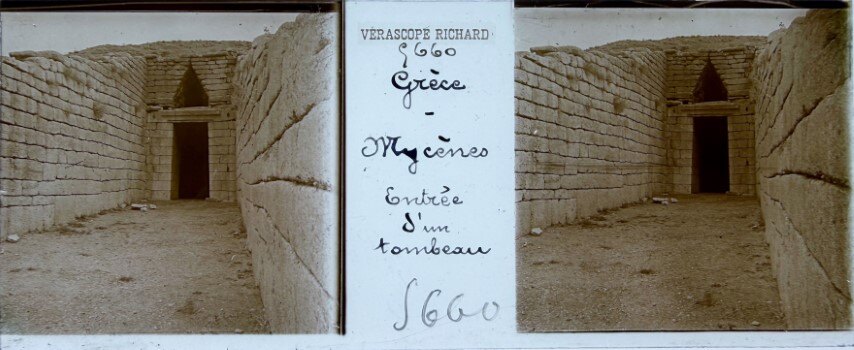 VÉRASCOPE RICHARD
5660
Grèce
-
Mycènes
Entrée
d'un
tombeau
5660